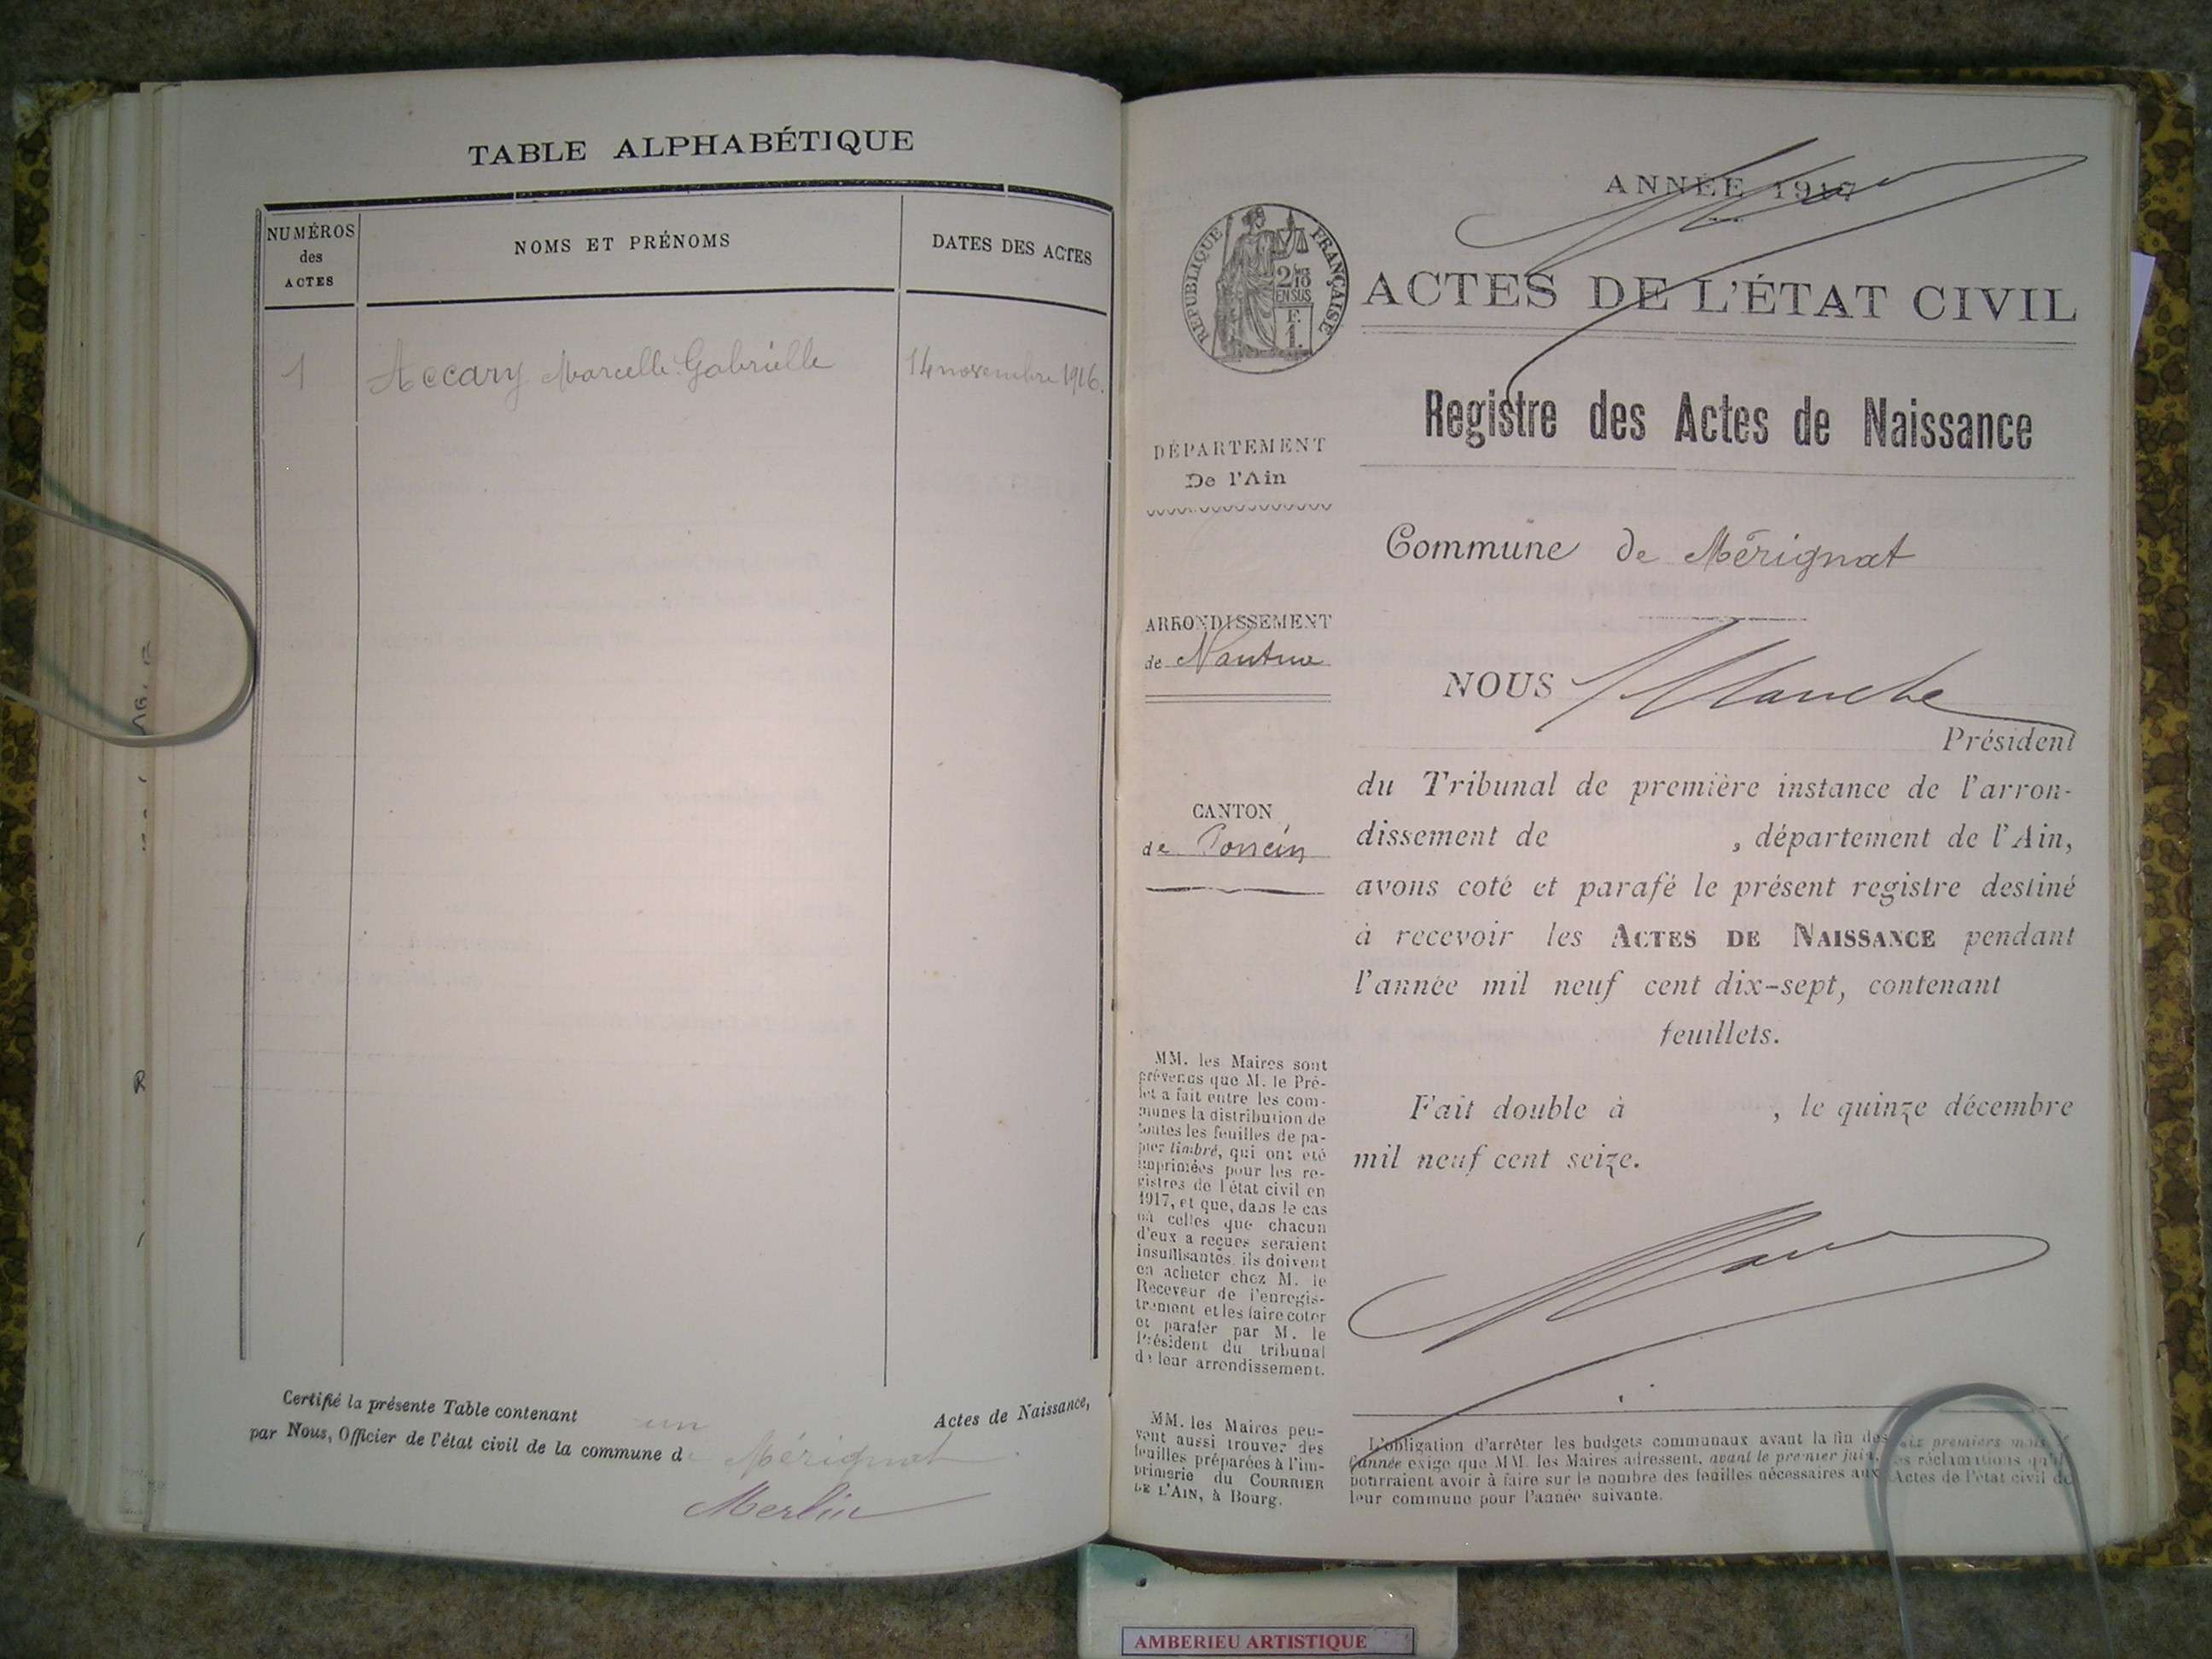 TABLE ALPHABÉTIQUE
NUMÉROS
des
ACTES
NOMS ET PRÉNOMS
DATES DES ACTES
1
Accary Marcelle Gabrielle
14 novembre 1916.
Certifié la présente Table contenant un Actes de Naissance,
par Nous, Officier de l'état civil de la commune de Mérignat
Merlin
ANNÉE 1917
RÉPUBLIQUE FRANÇAISE
2/10
EN SUS
F.
1.
ACTES DE L'ÉTAT CIVIL
Registre des Actes de Naissance
DÉPARTEMENT
De l'Ain
Commune de Mérignat
ARRONDISSEMENT
de Nantua
CANTON
de Poncin
NOUS
Président
du Tribunal de première instance de l'arron-
dissement de , département de l'Ain,
avons coté et parafé le présent registre destiné
à recevoir les ACTES DE NAISSANCE pendant
l'année mil neuf cent dix-sept, contenant
feuillets.
Fait double à , le quinze décembre
mil neuf cent seize.
MM. les Maires sont
prévenus que M. le Pré-
fet a fait entre les com-
munes la distribution de
toutes les feuilles de pa-
pier timbré, qui ont été
imprimées pour les re-
gistres de l'état civil en
1917, et que, dans le cas
où celles que chacun
d'eux a reçues seraient
insuffisantes, ils doivent
en acheter chez M. le
Receveur de l'enregis-
trement et les faire coter
et parafer par M. le
Président du tribunal
de leur arrondissement.
MM. les Maires peu-
vent aussi trouver des
feuilles préparées à l'im-
primerie du COURRIER
DE L'AIN, à Bourg.
L'obligation d'arrêter les budgets communaux avant la fin des six premiers mois de
l'année exige que MM. les Maires adressent, avant le premier juin, les réclamations qu'ils
pourraient avoir à faire sur le nombre des feuilles nécessaires aux Actes de l'état civil de
leur commune pour l'année suivante.
AMBERIEU ARTISTIQUE